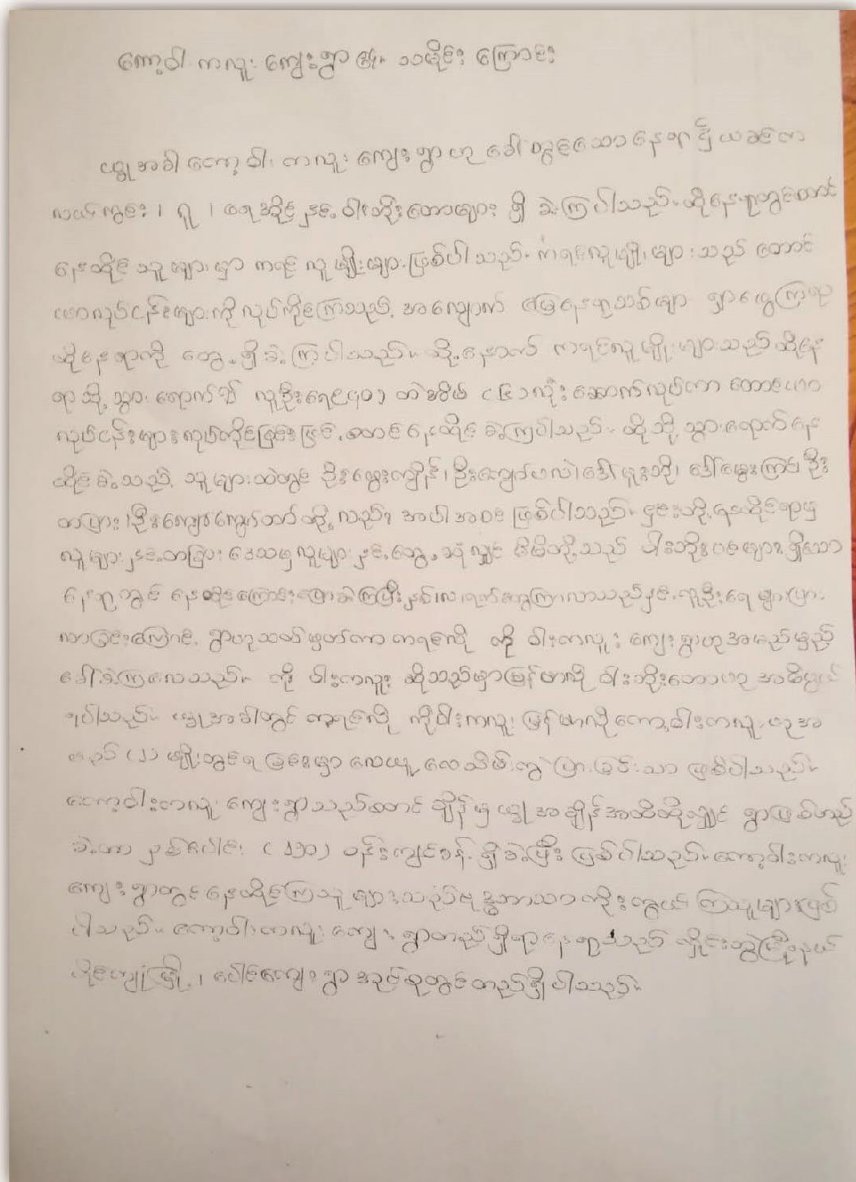 ကော့ဝါး ကလူး ကျေးရွာ ၏ သမိုင်း ကြောင်း
ယခု အခါ ကော့ဝါး ကလူး ကျေးရွာ ဟု ခေါ် တွင်သော နေရာ ၌ ယခင်က
လယ်ကွင်း ၊ ရှု ၊ ရေအိုင် နှင့် ဝါးဘိုးတောများ ရှိ ခဲ့ကြပါသည်။ ထိုနေရာတွင်တောင်
နေထိုင် သူ များမှာ ကရင် လူ မျိုးများ ဖြစ်ပါ သည်။ ကရင်လူမျိုးများ သည် တောင်
ယာလုပ်ငန်းများကို လုပ်ကိုင်ကြသည့် အလျောက် မြေနေရာသစ်များ ရှာဖွေကြရာ
ထိုနေရာကို တွေ့ရှိခဲ့ကြပါသည်။ ထို့နောက် ကရင်လူမျိုးများသည် ထိုနေ
ရာသို့ သွားရောက်၍ လူဦးရေ(၄၀) တဲအိမ် (၆)လုံး ဆောက်လုပ်ကာ တောင်ယာ
လုပ်ငန်းများ လုပ်ကိုင်ခြင်းဖြင့် စတင် နေထိုင် ခဲ့ကြပါသည်။ ထိုသို့ သွားရောက်နေ
ထိုင်ခဲ့သည့် သူများထဲတွင် ဦးထွေးကျိုန်၊ ဦးကျောက်ဖလဲ၊ ဒေါ်ဖူးဘို၊ ဒေါ်မွှေးကြင်၊ ဦး
တပြား၊ ဦးကျော်ကျောက်တော် တို့လည်း အပါ အဝင် ဖြစ်ပါသည်။ ၎င်းတို့ နေထိုင်ရာမှ
လူများ နှင့် တခြား ဒေသမှ လူများ နှင့် တွေ့ ဆုံ လျှင် မိမိတို့သည် ဝါးဘိုးပင်များ ရှိသော
နေရာ တွင် နေထိုင်ကြောင်း ပြောခဲ့ကြပြီး နှစ်၊ လ၊ ရက် ကြာလာသည်နှင့် လူဦးရေ များပြား
လာခြင်းကြောင့် ရွာဟုသတ်မှတ်ကာ ကရင်လို ကို့ ဝါးကလူး ကျေးရွာဟု အမည်မှည့်
ခေါ်ခဲ့ကြလေသည်။ ကို့ ဝါးကလူး ဆိုသည်မှာ မြန်မာလို ဝါးဘိုးတောဟု အဓိပ္ပာယ်
ရပါသည်။ ယခု အခါတွင် ကရင်လို ကို့ဝါးကလူး မြန်မာလို ကော့ဝါးကလူး ဟု အ
မည် (၂) မျိုးတွင်ရ ခြင်းမှာ လေယူ လေသိမ်း ကွဲ ပြား ခြင်း သာ ဖြစ်ပါသည်။
ကော့ဝါးကလူး ကျေးရွာသည် စတင် ချိန် မှ ယခု အချိန်အထိဆိုလျှင် ရွာဖြစ်တည်
ခဲ့တာ နှစ်ပေါင်း (၁၅၀) ဝန်းကျင်ခန့် ရှိခဲ့ပြီး ဖြစ်ပါသည်။ ကော့ဝါးကလူး
ကျေးရွာတွင် နေထိုင်ကြသူ များသည် ဗုဒ္ဓဘာသာ ကိုးကွယ် ကြသူများ ဖြစ်
ပါသည်။ ကော့ဝါးကလူး ကျေး ရွာတည်ရှိရာ နေရာသည် လှိုင်းဘွဲ့မြို့နယ်
ပိုင်ကျုံမြို့ ၊ ပေါင်ကျေးရွာ အုပ်စုတွင် တည်ရှိပါသည်။